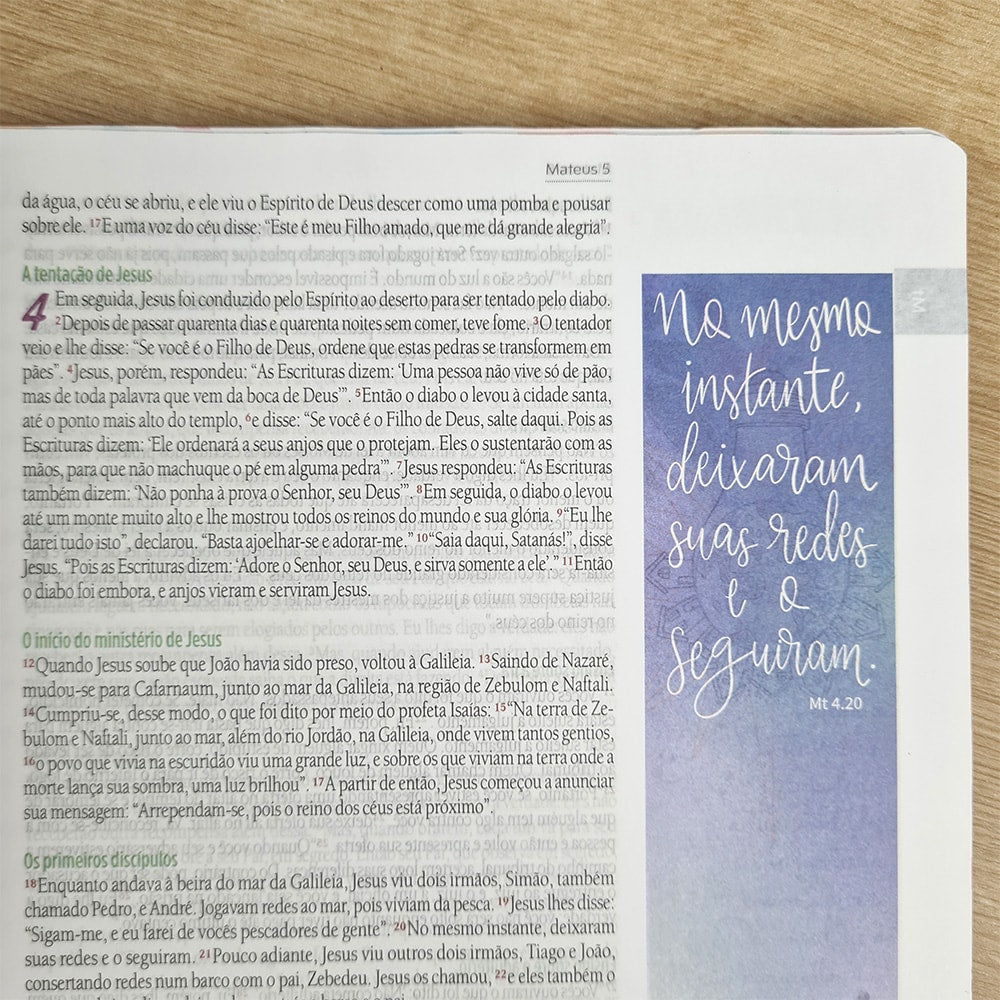 Mateus 5
da água, o céu se abriu, e ele viu o Espírito de Deus descer como uma pomba e pousar
sobre ele. 17E uma voz do céu disse: “Este é meu Filho amado, que me dá grande alegria”.
A tentação de Jesus
4 Em seguida, Jesus foi conduzido pelo Espírito ao deserto para ser tentado pelo diabo.
2Depois de passar quarenta dias e quarenta noites sem comer, teve fome. 3O tentador
veio e lhe disse: “Se você é o Filho de Deus, ordene que estas pedras se transformem em
pães”. 4Jesus, porém, respondeu: “As Escrituras dizem: ‘Uma pessoa não vive só de pão,
mas de toda palavra que vem da boca de Deus’”. 5Então o diabo o levou à cidade santa,
até o ponto mais alto do templo, 6e disse: “Se você é o Filho de Deus, salte daqui. Pois as
Escrituras dizem: ‘Ele ordenará a seus anjos que o protejam. Eles o sustentarão com as
mãos, para que não machuque o pé em alguma pedra’”. 7Jesus respondeu: “As Escrituras
também dizem: ‘Não ponha à prova o Senhor, seu Deus’”. 8Em seguida, o diabo o levou
até um monte muito alto e lhe mostrou todos os reinos do mundo e sua glória. 9“Eu lhe
darei tudo isto”, declarou. “Basta ajoelhar-se e adorar-me.” 10“Saia daqui, Satanás!”, disse
Jesus. “Pois as Escrituras dizem: ‘Adore o Senhor, seu Deus, e sirva somente a ele’.” 11Então
o diabo foi embora, e anjos vieram e serviram Jesus.
O início do ministério de Jesus
12Quando Jesus soube que João havia sido preso, voltou à Galileia. 13Saindo de Nazaré,
mudou-se para Cafarnaum, junto ao mar da Galileia, na região de Zebulom e Naftali.
14Cumpriu-se, desse modo, o que foi dito por meio do profeta Isaías: 15“Na terra de Ze-
bulom e Naftali, junto ao mar, além do rio Jordão, na Galileia, onde vivem tantos gentios,
16o povo que vivia na escuridão viu uma grande luz, e sobre os que viviam na terra onde a
morte lança sua sombra, uma luz brilhou”. 17A partir de então, Jesus começou a anunciar
sua mensagem: “Arrependam-se, pois o reino dos céus está próximo”.
Os primeiros discípulos
18Enquanto andava à beira do mar da Galileia, Jesus viu dois irmãos, Simão, também
chamado Pedro, e André. Jogavam redes ao mar, pois viviam da pesca. 19Jesus lhes disse:
“Sigam-me, e eu farei de vocês pescadores de gente”. 20No mesmo instante, deixaram
suas redes e o seguiram. 21Pouco adiante, Jesus viu outros dois irmãos, Tiago e João,
consertando redes num barco com o pai, Zebedeu. Jesus os chamou, 22e eles também o
No mesmo
instante,
deixaram
suas redes
e o
seguiram.
Mt 4.20